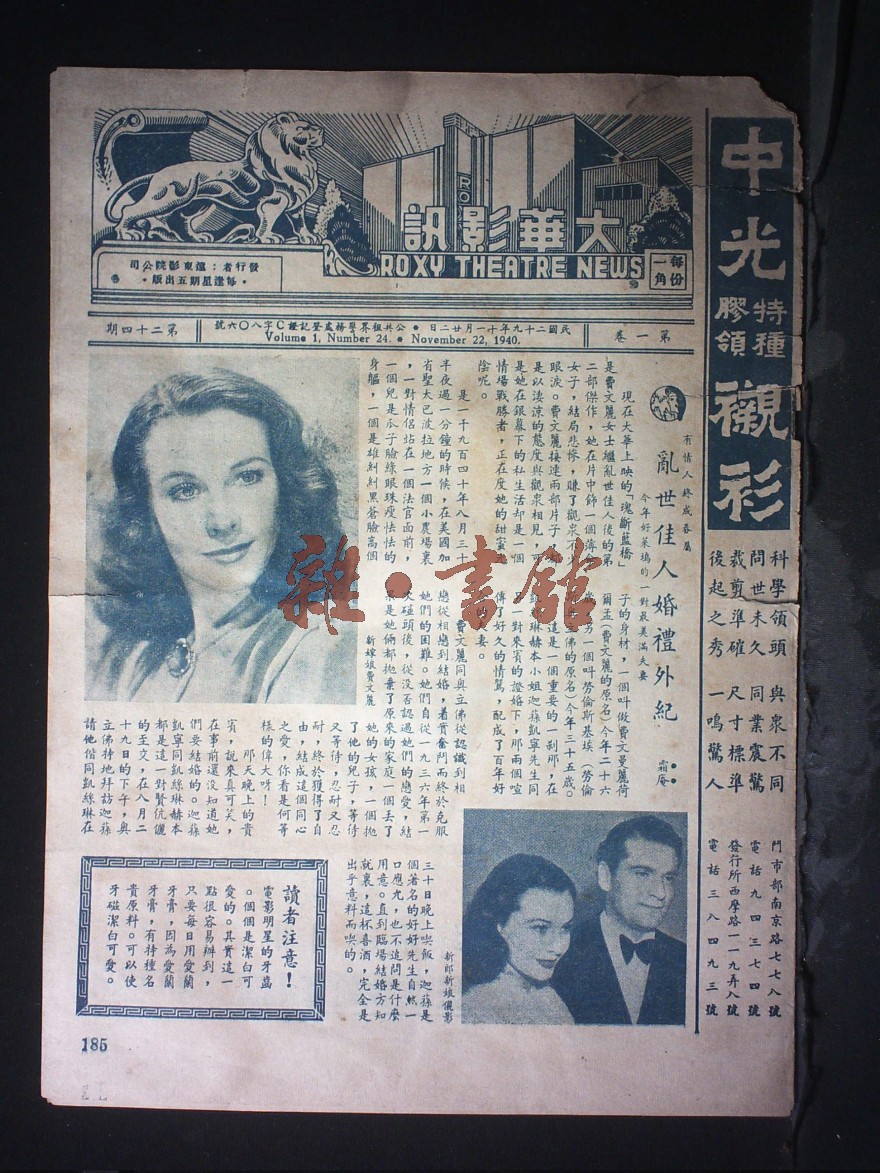 大華影訊
ROXY THEATRE NEWS
ROXY
每份
一角
發行者：遠東影院公司
•每逢星期五出版•
第一卷
民國二十九年十一月廿二日•公共租界警務處登記證C字八〇六號
第二十四期
Volume 1, Number 24. • November 22, 1940.
中光
特種
膠領
襯衫
科學領頭 與衆不同
問世未久 同業震驚
裁剪準確 尺寸標準
後起之秀 一鳴驚人
門市部南京路七七八號
電話九四三七四號
發行所西摩路一一九弄八號
電話三八四九三號
有情人終成眷屬
亂世佳人婚禮外紀
今年好萊塢的一對最美滿夫妻
霜庵
現在大華上映的「魂斷藍橋」
是費文麗女士繼亂世佳人後的第
二部傑作，她在片中飾一個薄命
女子，結局悲慘，賺了觀衆不少
眼淚。費文麗接連兩部片子，都
是以淒涼的態度與觀衆相見，可
是她在銀幕下的私生活却是一個
情場戰勝者，正在度她的甜蜜光
陰呢。
是一千九百四十年八月三十
半夜過一分鐘的時候，在美國加
省聖太巴波拉地方一個小農場裏
，一對情侶站在一個法官面前，
一個兒是瓜子臉綠眼珠瘦怯怯的
身軀，一個是雄糾糾黑蒼臉高個
子的身材，一個叫做費文曼麗荷
爾孟(費文麗的原名)今年二十六
歲，另一個叫勞倫斯基埃(勞倫
立佛的原名)今年三十五歲。
這是一個重要的一刹那，在
琳赫本小姐迦蓀凱寧先生同
一對來賓的證婚下，那兩個喧
傳了好久的情鴛，配成了百年好
夫妻。
費文麗同奥立佛從認識到相
戀從相戀到結婚，着實奮鬥而終於克服
她們的困難。她們自從一九三六年第一
次碰頭後，從没否認過她們的戀愛，結
果是她倆都拋棄了原來的家庭一個丢了
她的女孩，一個拋
了他的兒子，等待
又等待，忍耐又忍
耐，終於獲得了自
由，結成這個同心
之愛，你看是何等
樣的偉大呀！
那天晚上的貴
賓，說來真可笑，
在事前還没知道她
們要結婚的。迦蓀
凱寧同凱絲琳赫本
都是這一對賢伉儷
的至交，在八月二
十九日的下午，奥
立佛特地拜訪迦蓀
請他偕同凱絲琳在
三十日晚上喫飯，迦蓀是
個著名的好好先生自然一
口應允，也不追問是什麼
用意。直到臨場結婚方知
就裏，這杯喜酒，完全是
出乎意料而喫的。
新嫁娘費文麗
新郎新娘儷影
讀者注意！
電影明星的牙齒
。個個是潔白可
愛的。其實這一
點很容易辦到，
只要每日用愛蘭
牙膏，因為愛蘭
牙膏，有特種名
貴原料。可以使
牙磁潔白可愛。
185
雜•書館